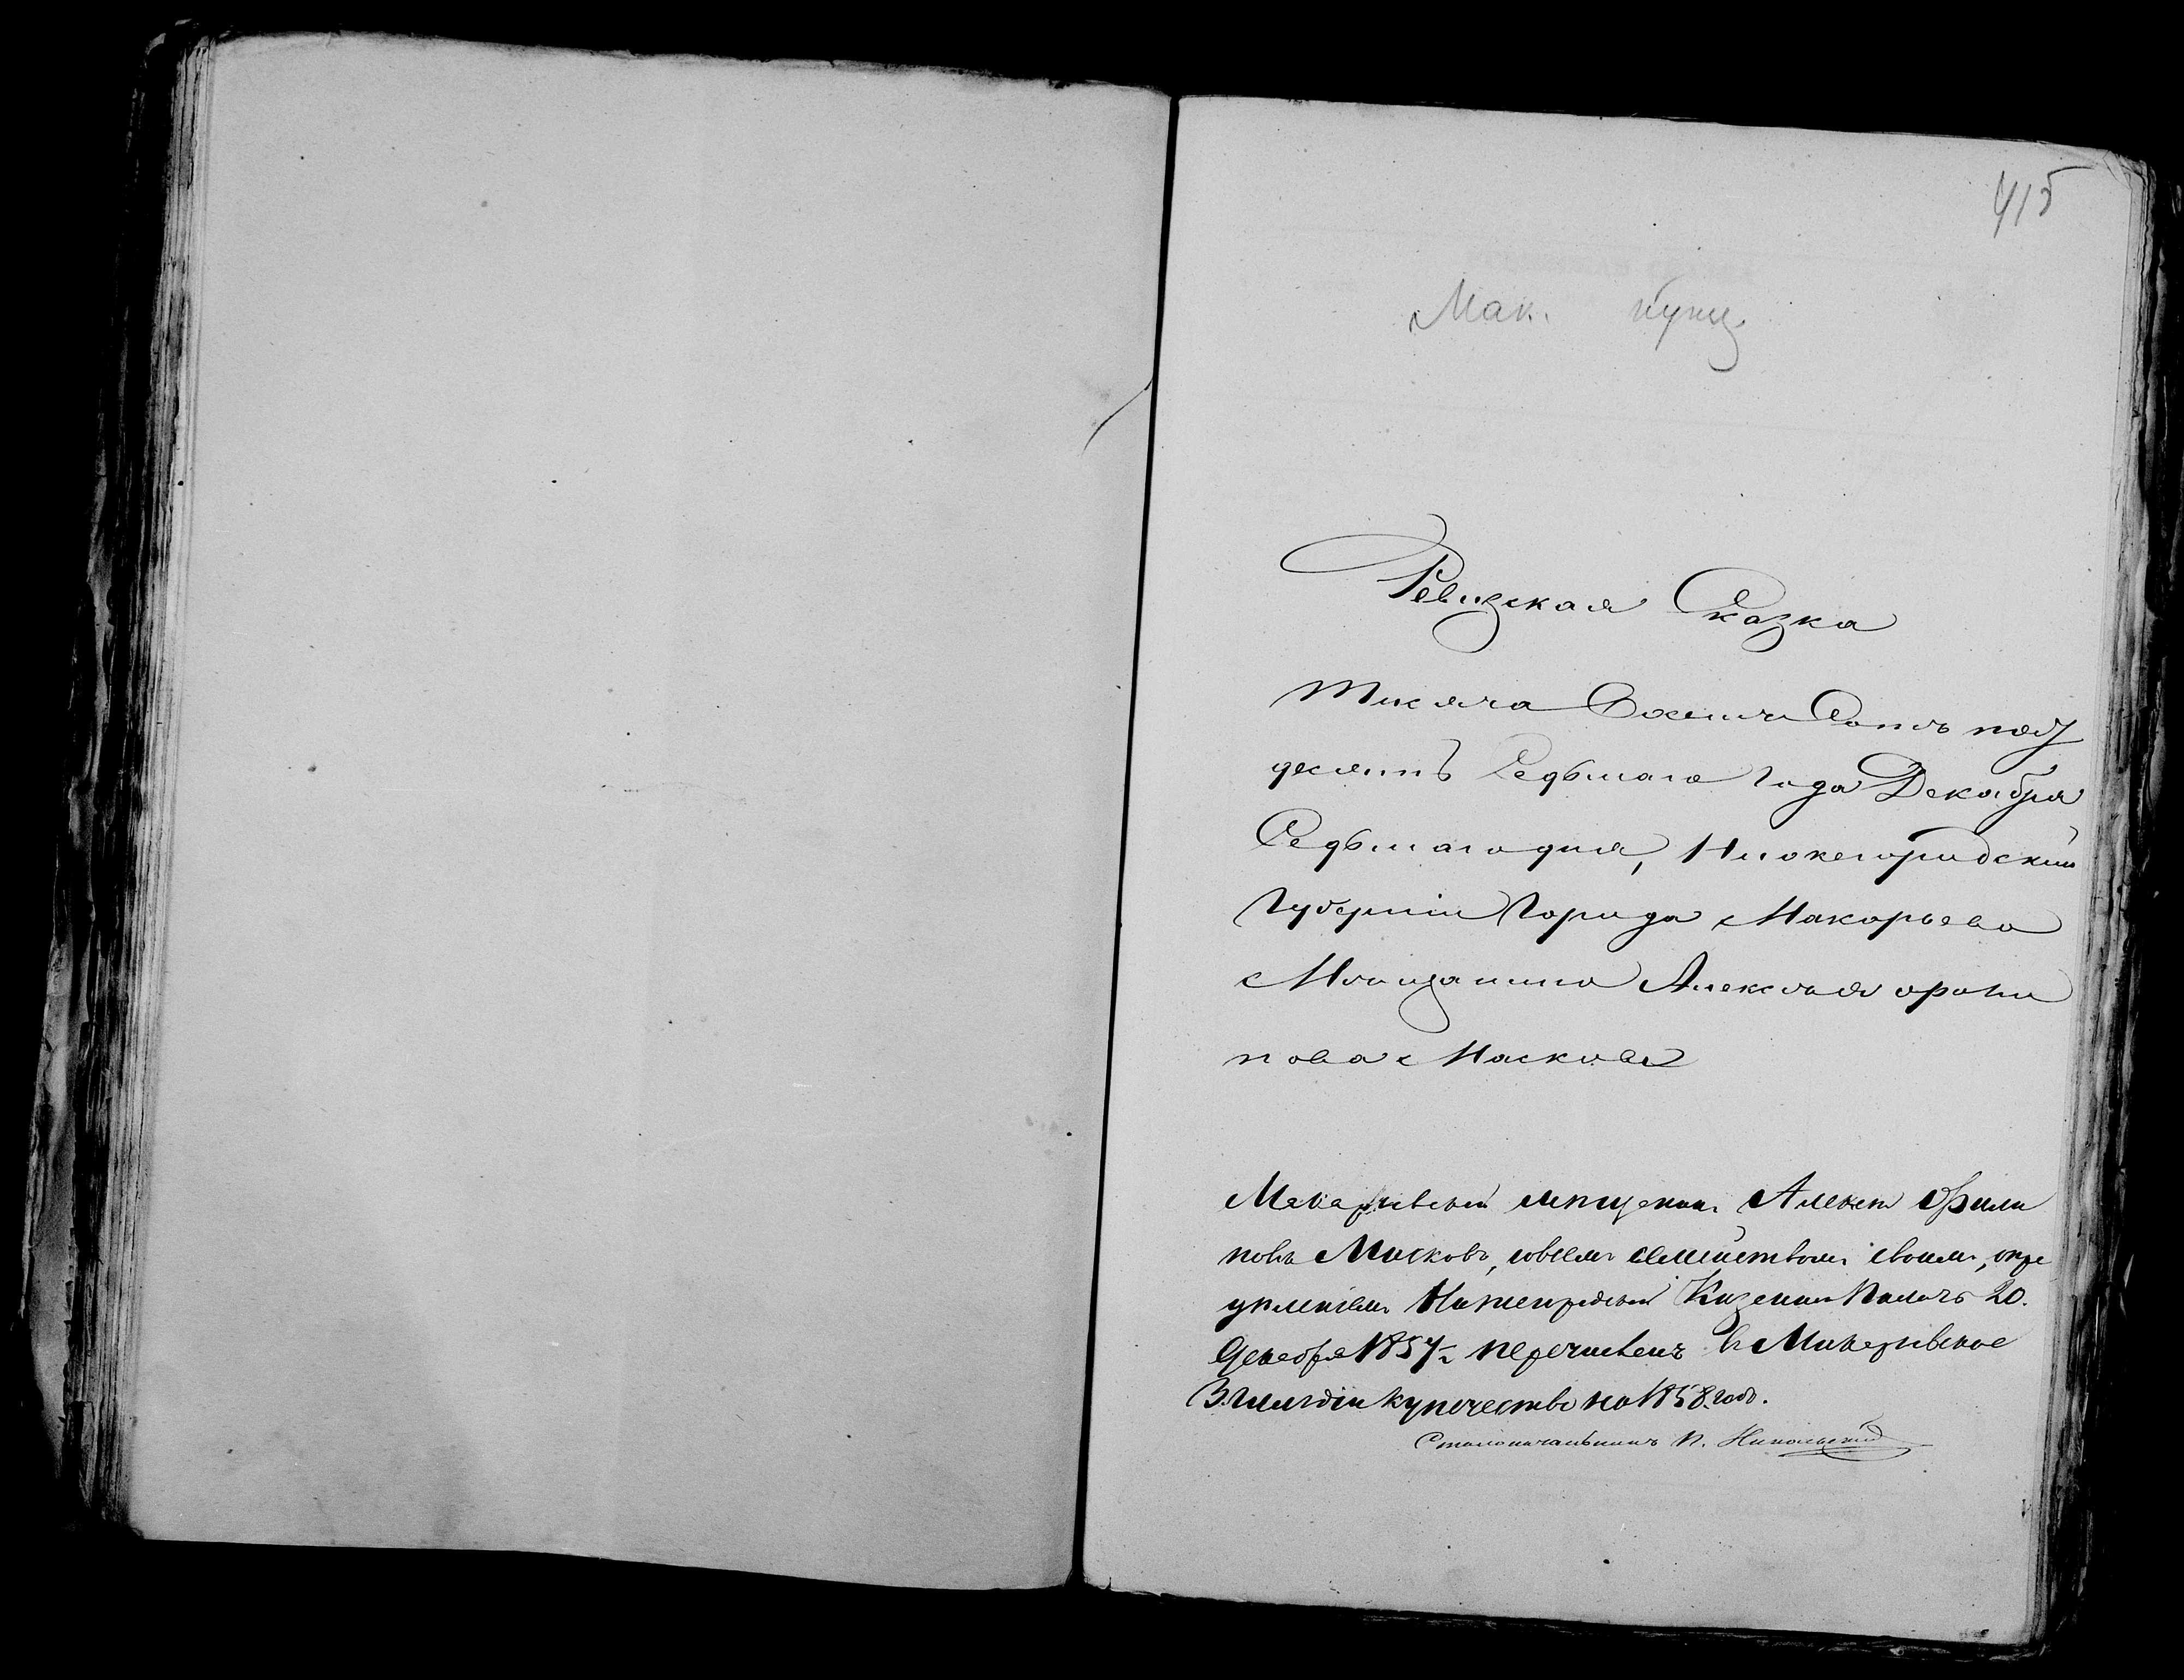 415
Мак. купц.
Ревизская Сказка
Тысяча Восемь Сотъ пять
десятъ Седьмаго Года Декабря
Седьмаго дня, Нижегородской
Губерніи Города Макарьева
Мещанина Алексея Фили
пова Маскова
Макарьевскій мещанинъ Алексей Фили
повъ Масковъ, совсемъ семействомъ своимъ, опре
деленіемъ Нижегородской Казенной Палаты 20.
Декабря 1857 г. перечисленъ въ Макарьевское
3. гильдіи купечество на 1858 годъ.
Столоначальникъ П. Никольскій